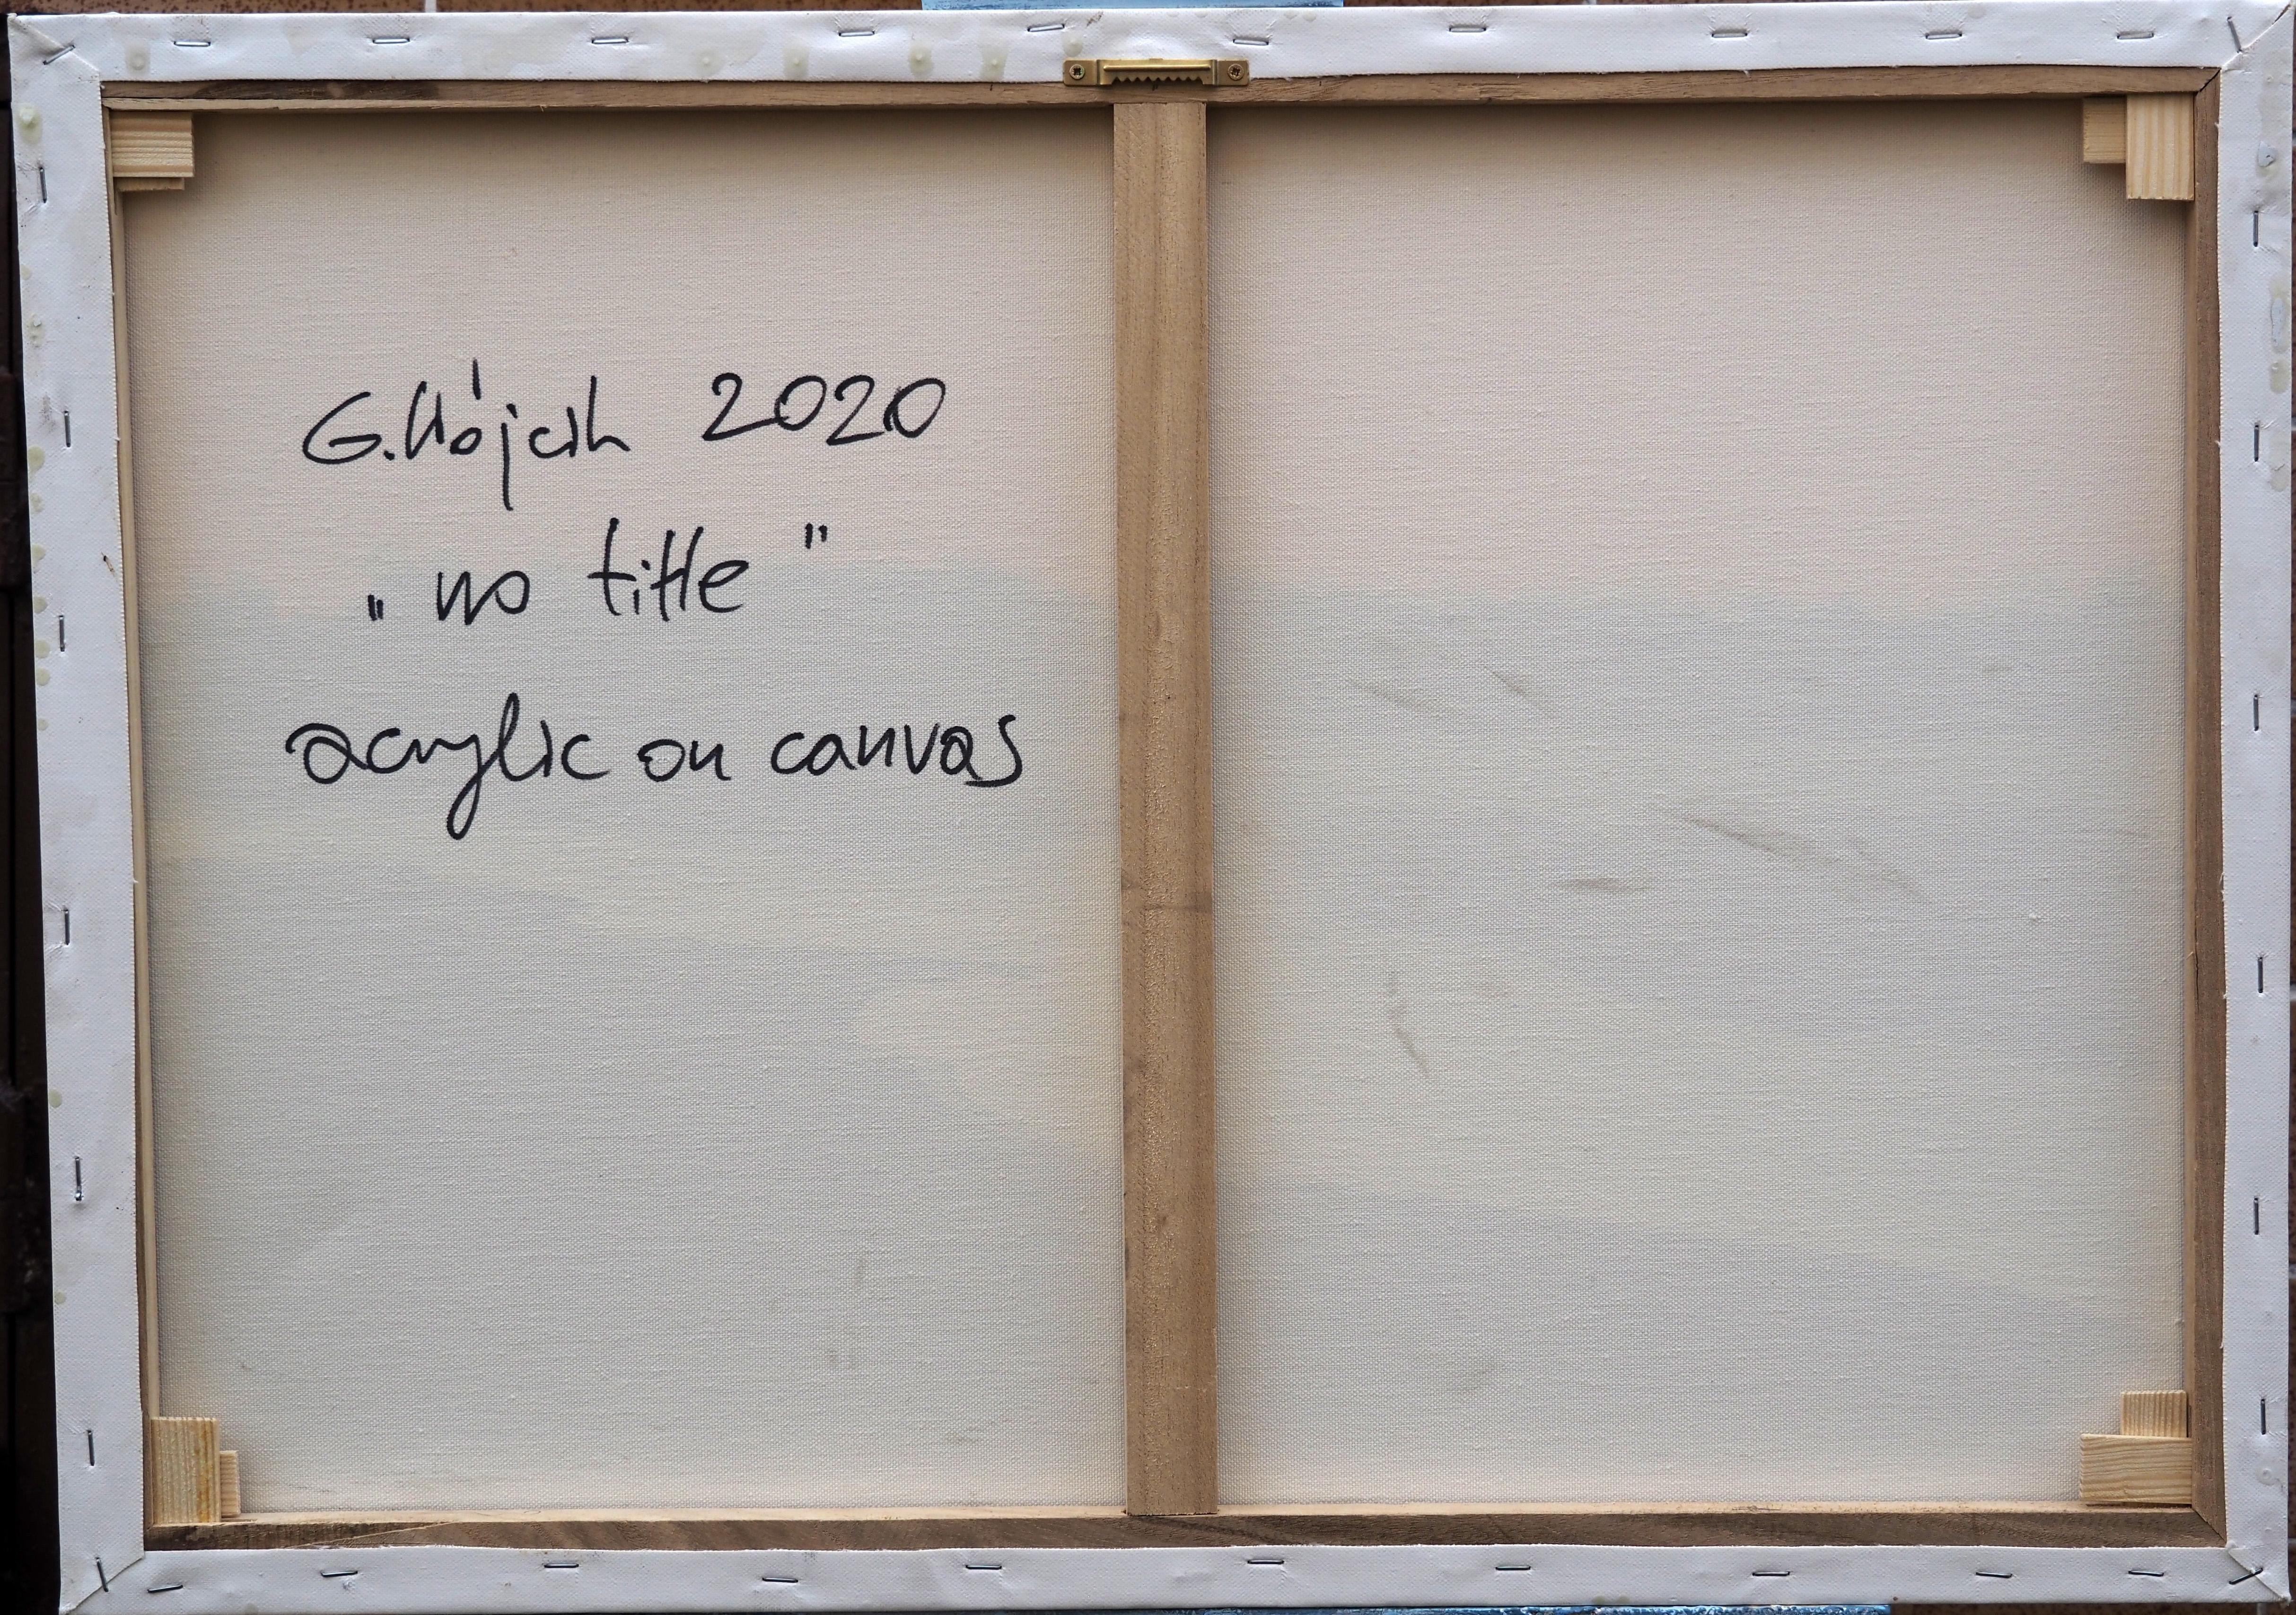 G. Wójcik 2020
„no title”
acrylic on canvas